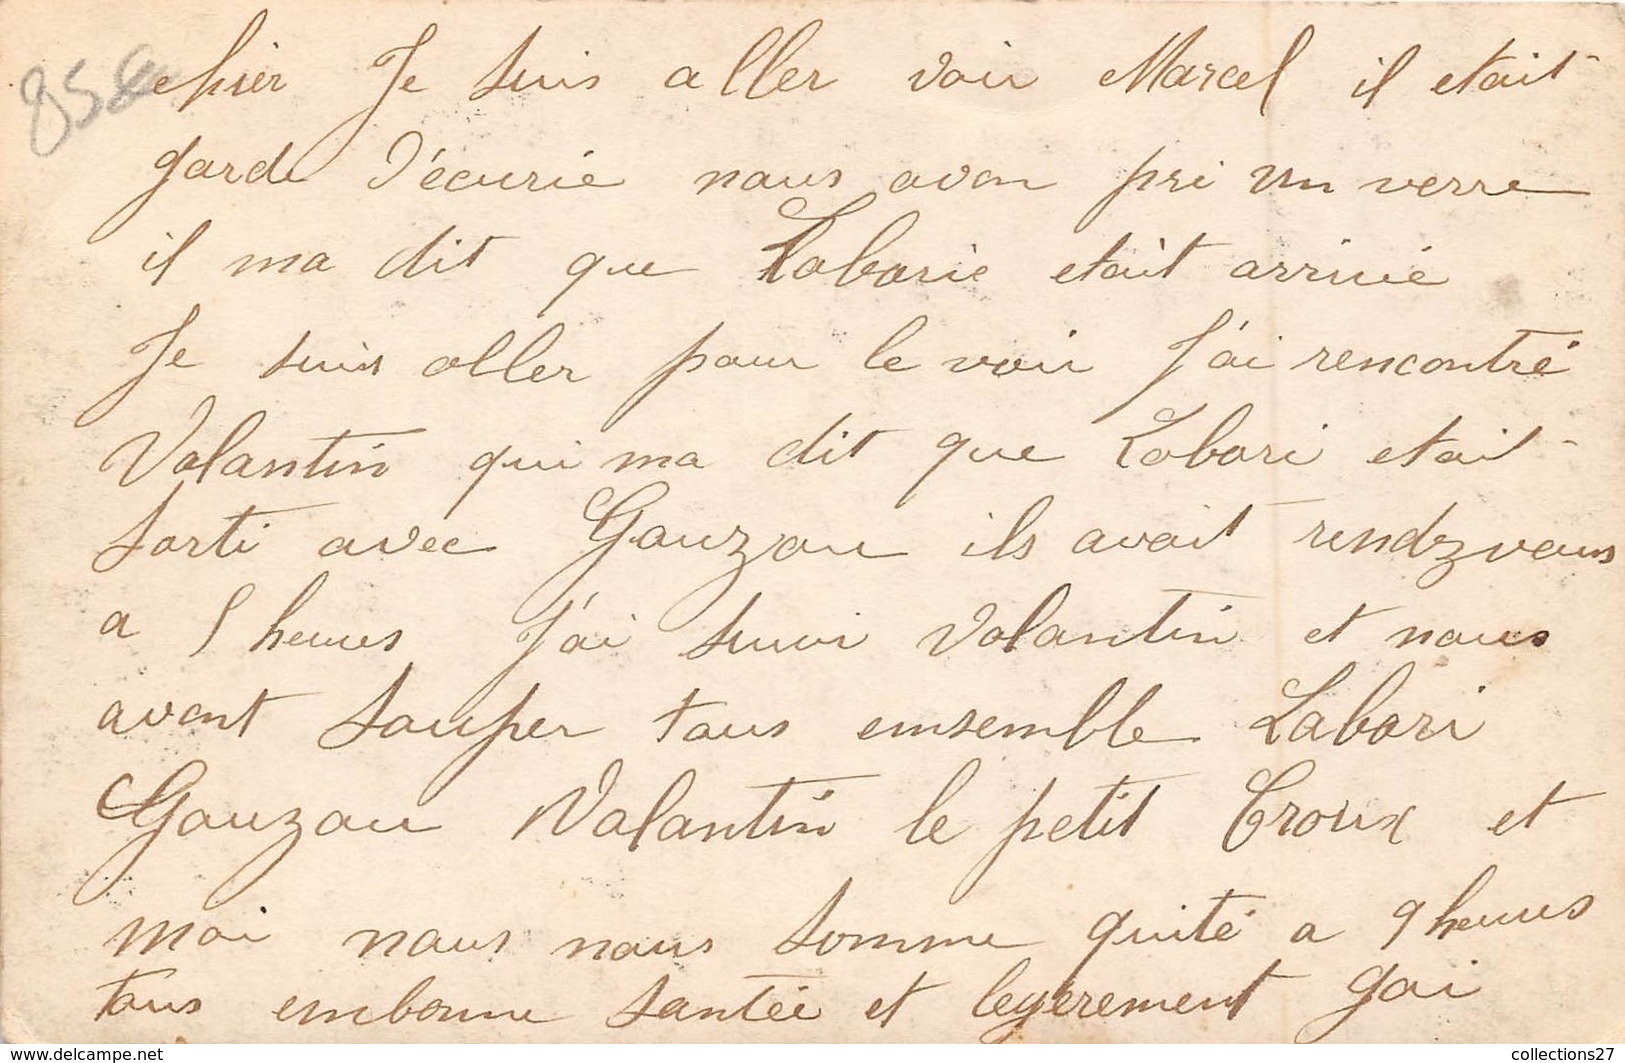 85€
hier Je suis aller voir Marcel il etait
garde d'écurie nous avon pri un verre
il ma dit que Labarie etait arrivé
Je suis aller pour le voir J'ai rencontré
Valantin qui ma dit que Labari etait
sorti avec Gauzou ils avait rendz vous
a 5 heures J'ai suivi Valantin et nous
avont souper tous emsemble Labari
Gauzou Valantin le petit Croux et
moi nous nous somme quité a 9 heures
tous embonne santée et legèrement gai
www.delcampe.net
collections27